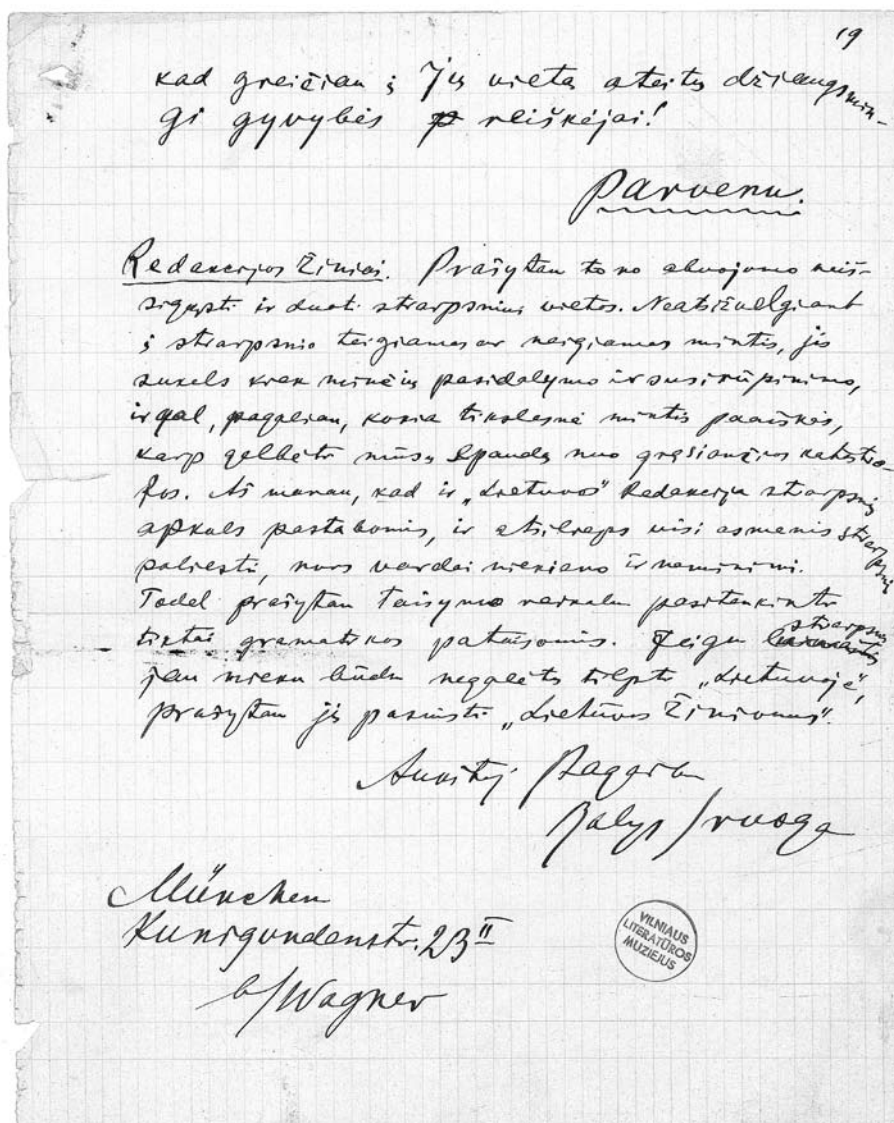 19
kad greičiau į Jų vietą ateitų džiaugsmin-
gi gyvybės reiškėjai!
Parvenu.
Redakcijos Žiniai. Prašytau tono aluojomo neiš-
sigąsti ir duoti straipsniui vietos. Neatsižvelgiant
į straipsnio teigiamas ar neigiamas mintis, jis
sukels kiek minčių pasidalymo ir susirūpinimo,
ir gal, pagaliau, kokia tikslesnė mintis paaiškės,
kaip gelbėti mūsų spaudą nuo gręsiančios katastro-
fos. Aš manau, kad ir „Lietuvos" Redakcija straipsnį
apkals pastabomis, ir atsilieps visi asmenis straipsny
paliesti, nors vardai niekieno ir neminimi.
Todėl prašytau taisymo reikalu pasitenkinti
tiktai gramatikos pataisomis. Jeigu straipsnis
jau nieku būdu negalėtų tilpti „Lietuvoje",
prašytau jį pasiųsti „Lietuvos Žinioms".
Aukštoj Pagarboj
Balys Sruoga
München
Kunigundenstr. 23 II
b/Wagner
VILNIAUS
LITERATŪROS
MUZIEJUS